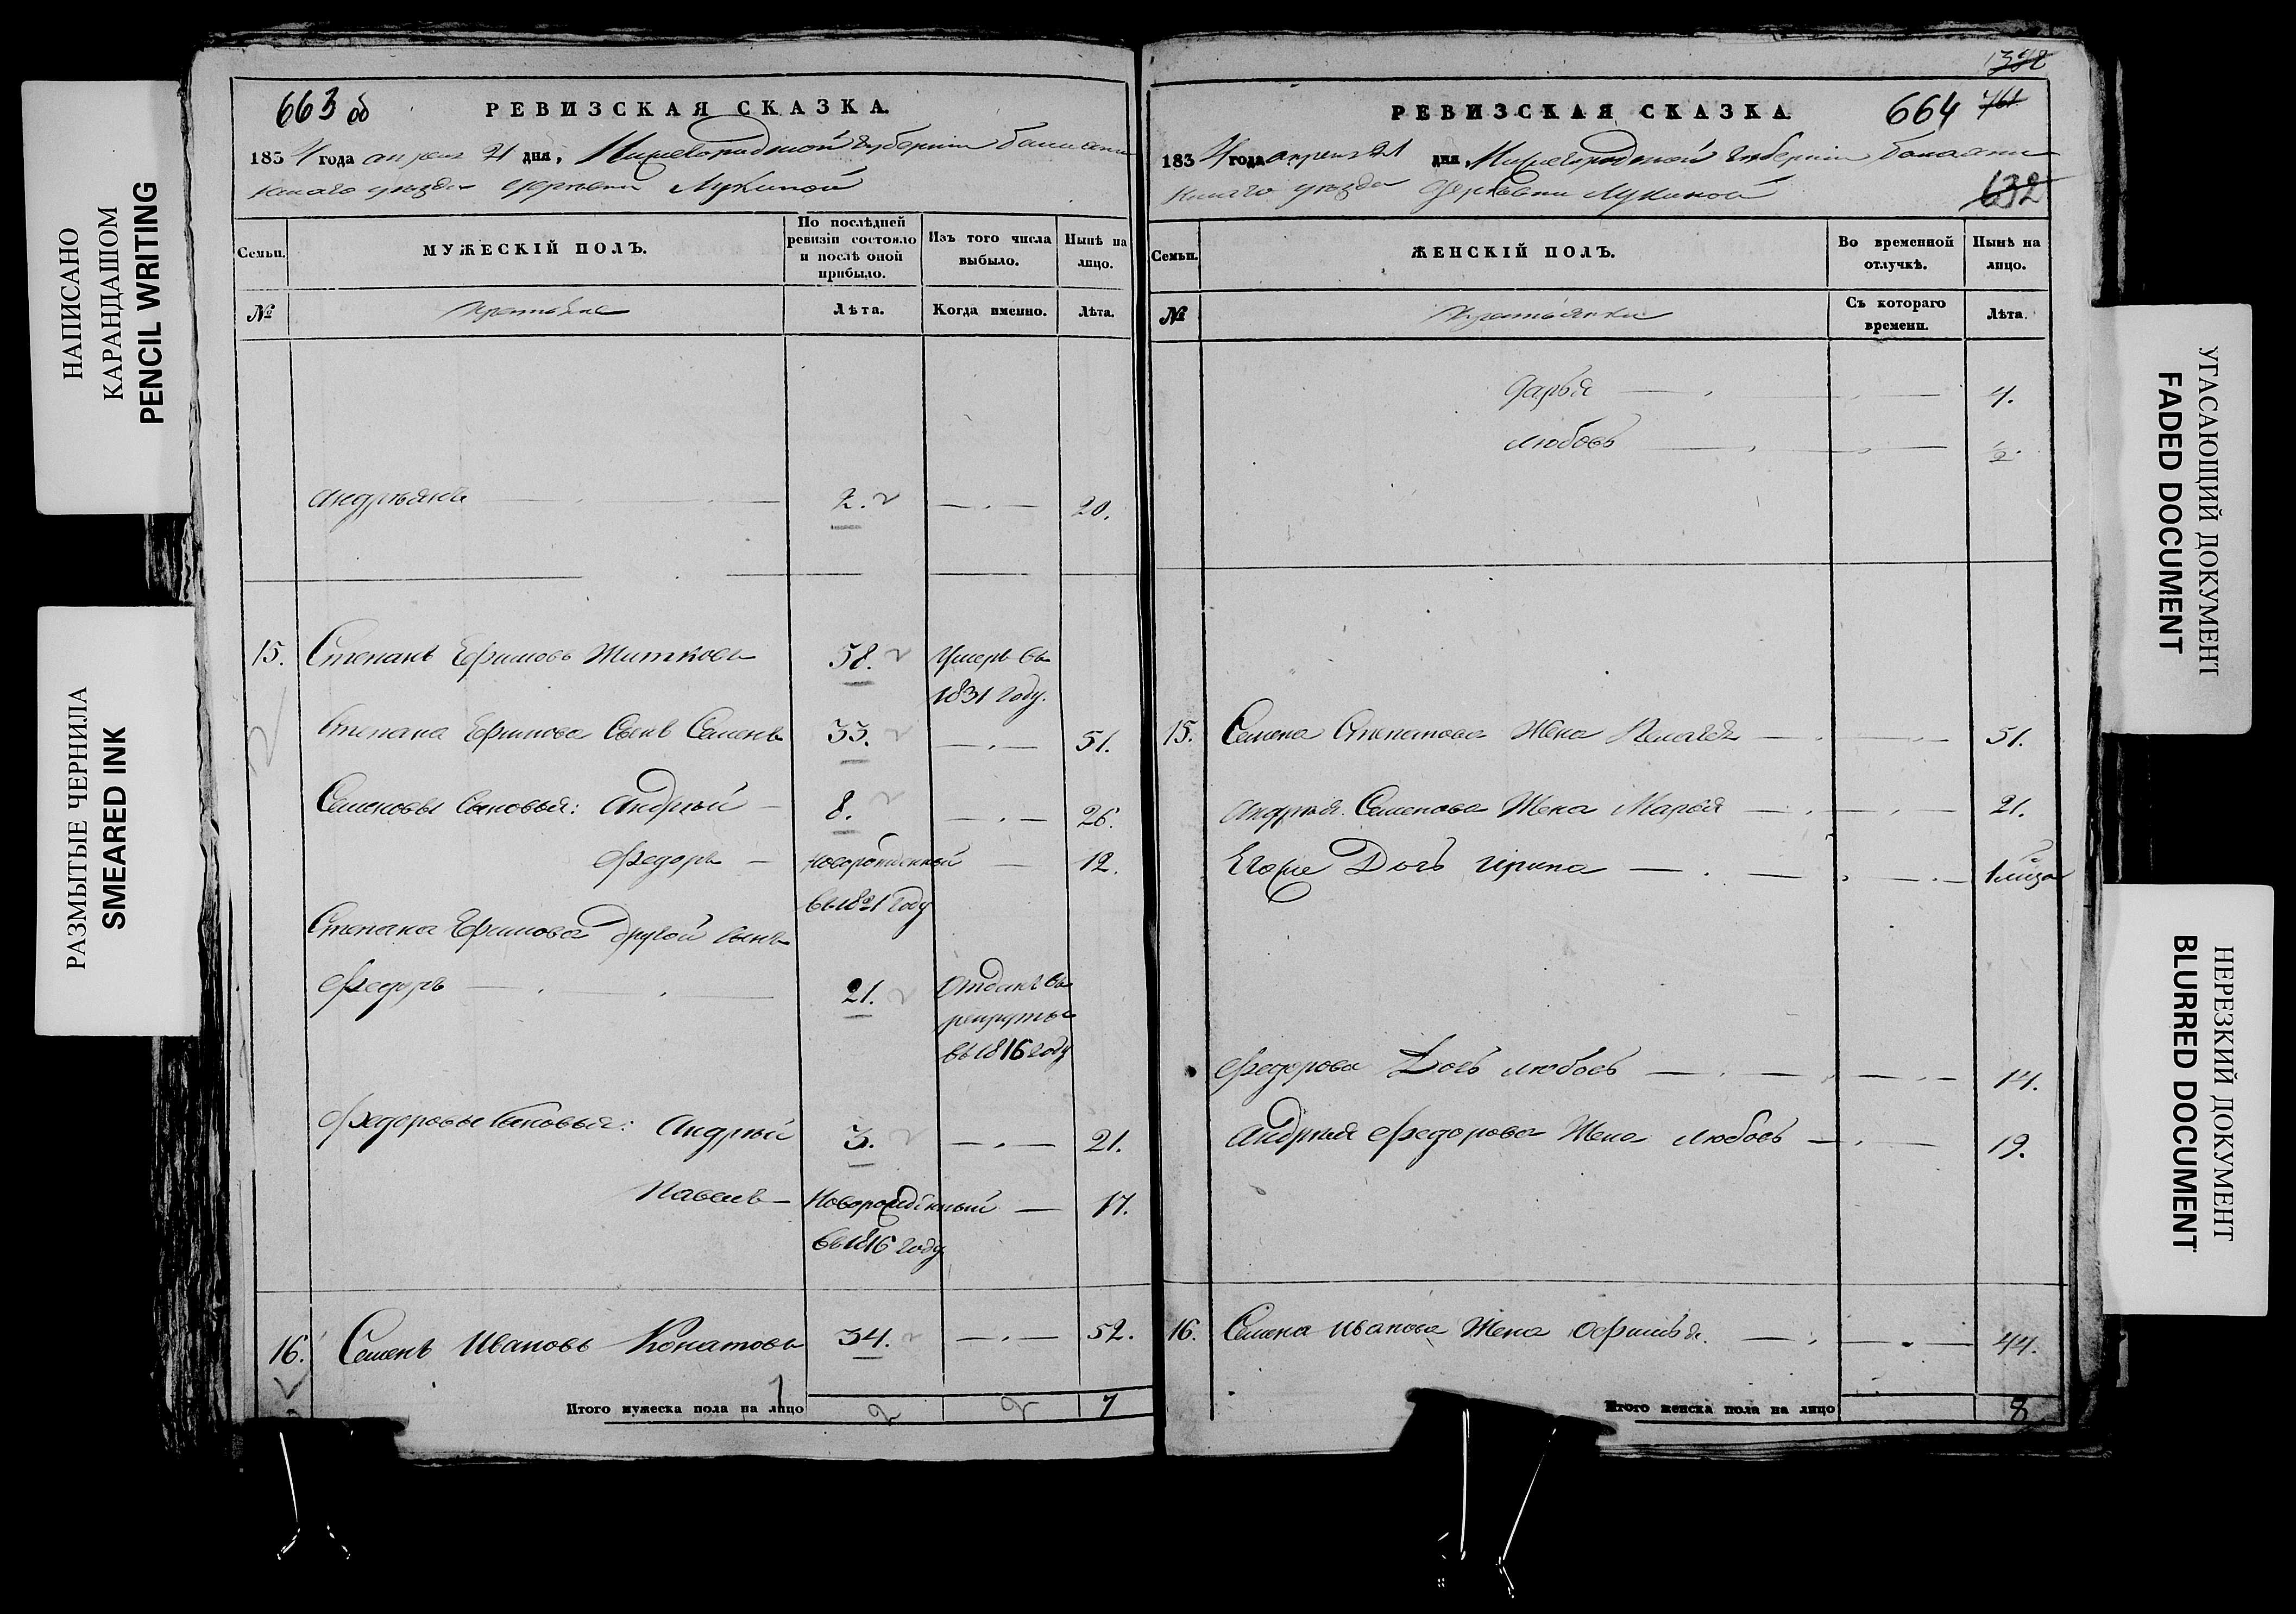 НАПИСАНО
КАРАНДАШОМ
PENCIL WRITING
РАЗМЫТЫЕ ЧЕРНИЛА
SMEARED INK
663 об
РЕВИЗСКАЯ СКАЗКА.
1834 года апреля 21 дня, Нижегородской губернии Балахни
нскаго уезда деревни Лукиной
Семьи.
МУЖЕСКІЙ ПОЛЪ.
По послѣдней ревизіи состояло и послѣ оной прибыло.
Изъ того числа выбыло.
Нынѣ на лицо.
№
Крестьяне
Лѣта.
Когда именно.
Лѣта.
Андреянъ 2. 20.
15. Степанъ Ефимовъ Житковъ 58. Умеръ въ
1831 году.
Степана Ефимова Сынъ Семенъ 33. 51.
Семеновы Сыновья: Андрей 8. 26.
Федоръ новорожденный 12.
въ 1821 году
Степана Ефимова другой сынъ
Федоръ 21. Отданъ въ
рекруты
въ 1816 году
Федоровы Сыновья: Андрей 3. 21.
Павелъ Новорожденный 17.
въ 1816 году
16. Семенъ Ивановъ 34. 52.
Итого мужеска пола на лицо 2 2 7
1378
РЕВИЗСКАЯ СКАЗКА
664 761
1834 года апреля 21 дня Нижегородской губернии Балахни
нскаго уезда деревни Лукиной
632
Семьи.
ЖЕНСКІЙ ПОЛЪ.
Во временной отлучкѣ.
Нынѣ на лицо.
№
Крестьянки
Съ котораго времени.
Лѣта.
Дарья 4.
Любовь
15. Семена Степанова Жена Пелагея 51.
Андрея Семенова Жена Марья 21.
Его же Дочь Ирина
Федорова Дочь Любовь 14.
Андрея Федорова Жена Любовь 19.
16. Семена Иванова Жена Офимья 44.
Итого женска пола на лицо 8
УГАСАЮЩИЙ ДОКУМЕНТ
FADED DOCUMENT
НЕРЕЗКИЙ ДОКУМЕНТ
BLURRED DOCUMENT